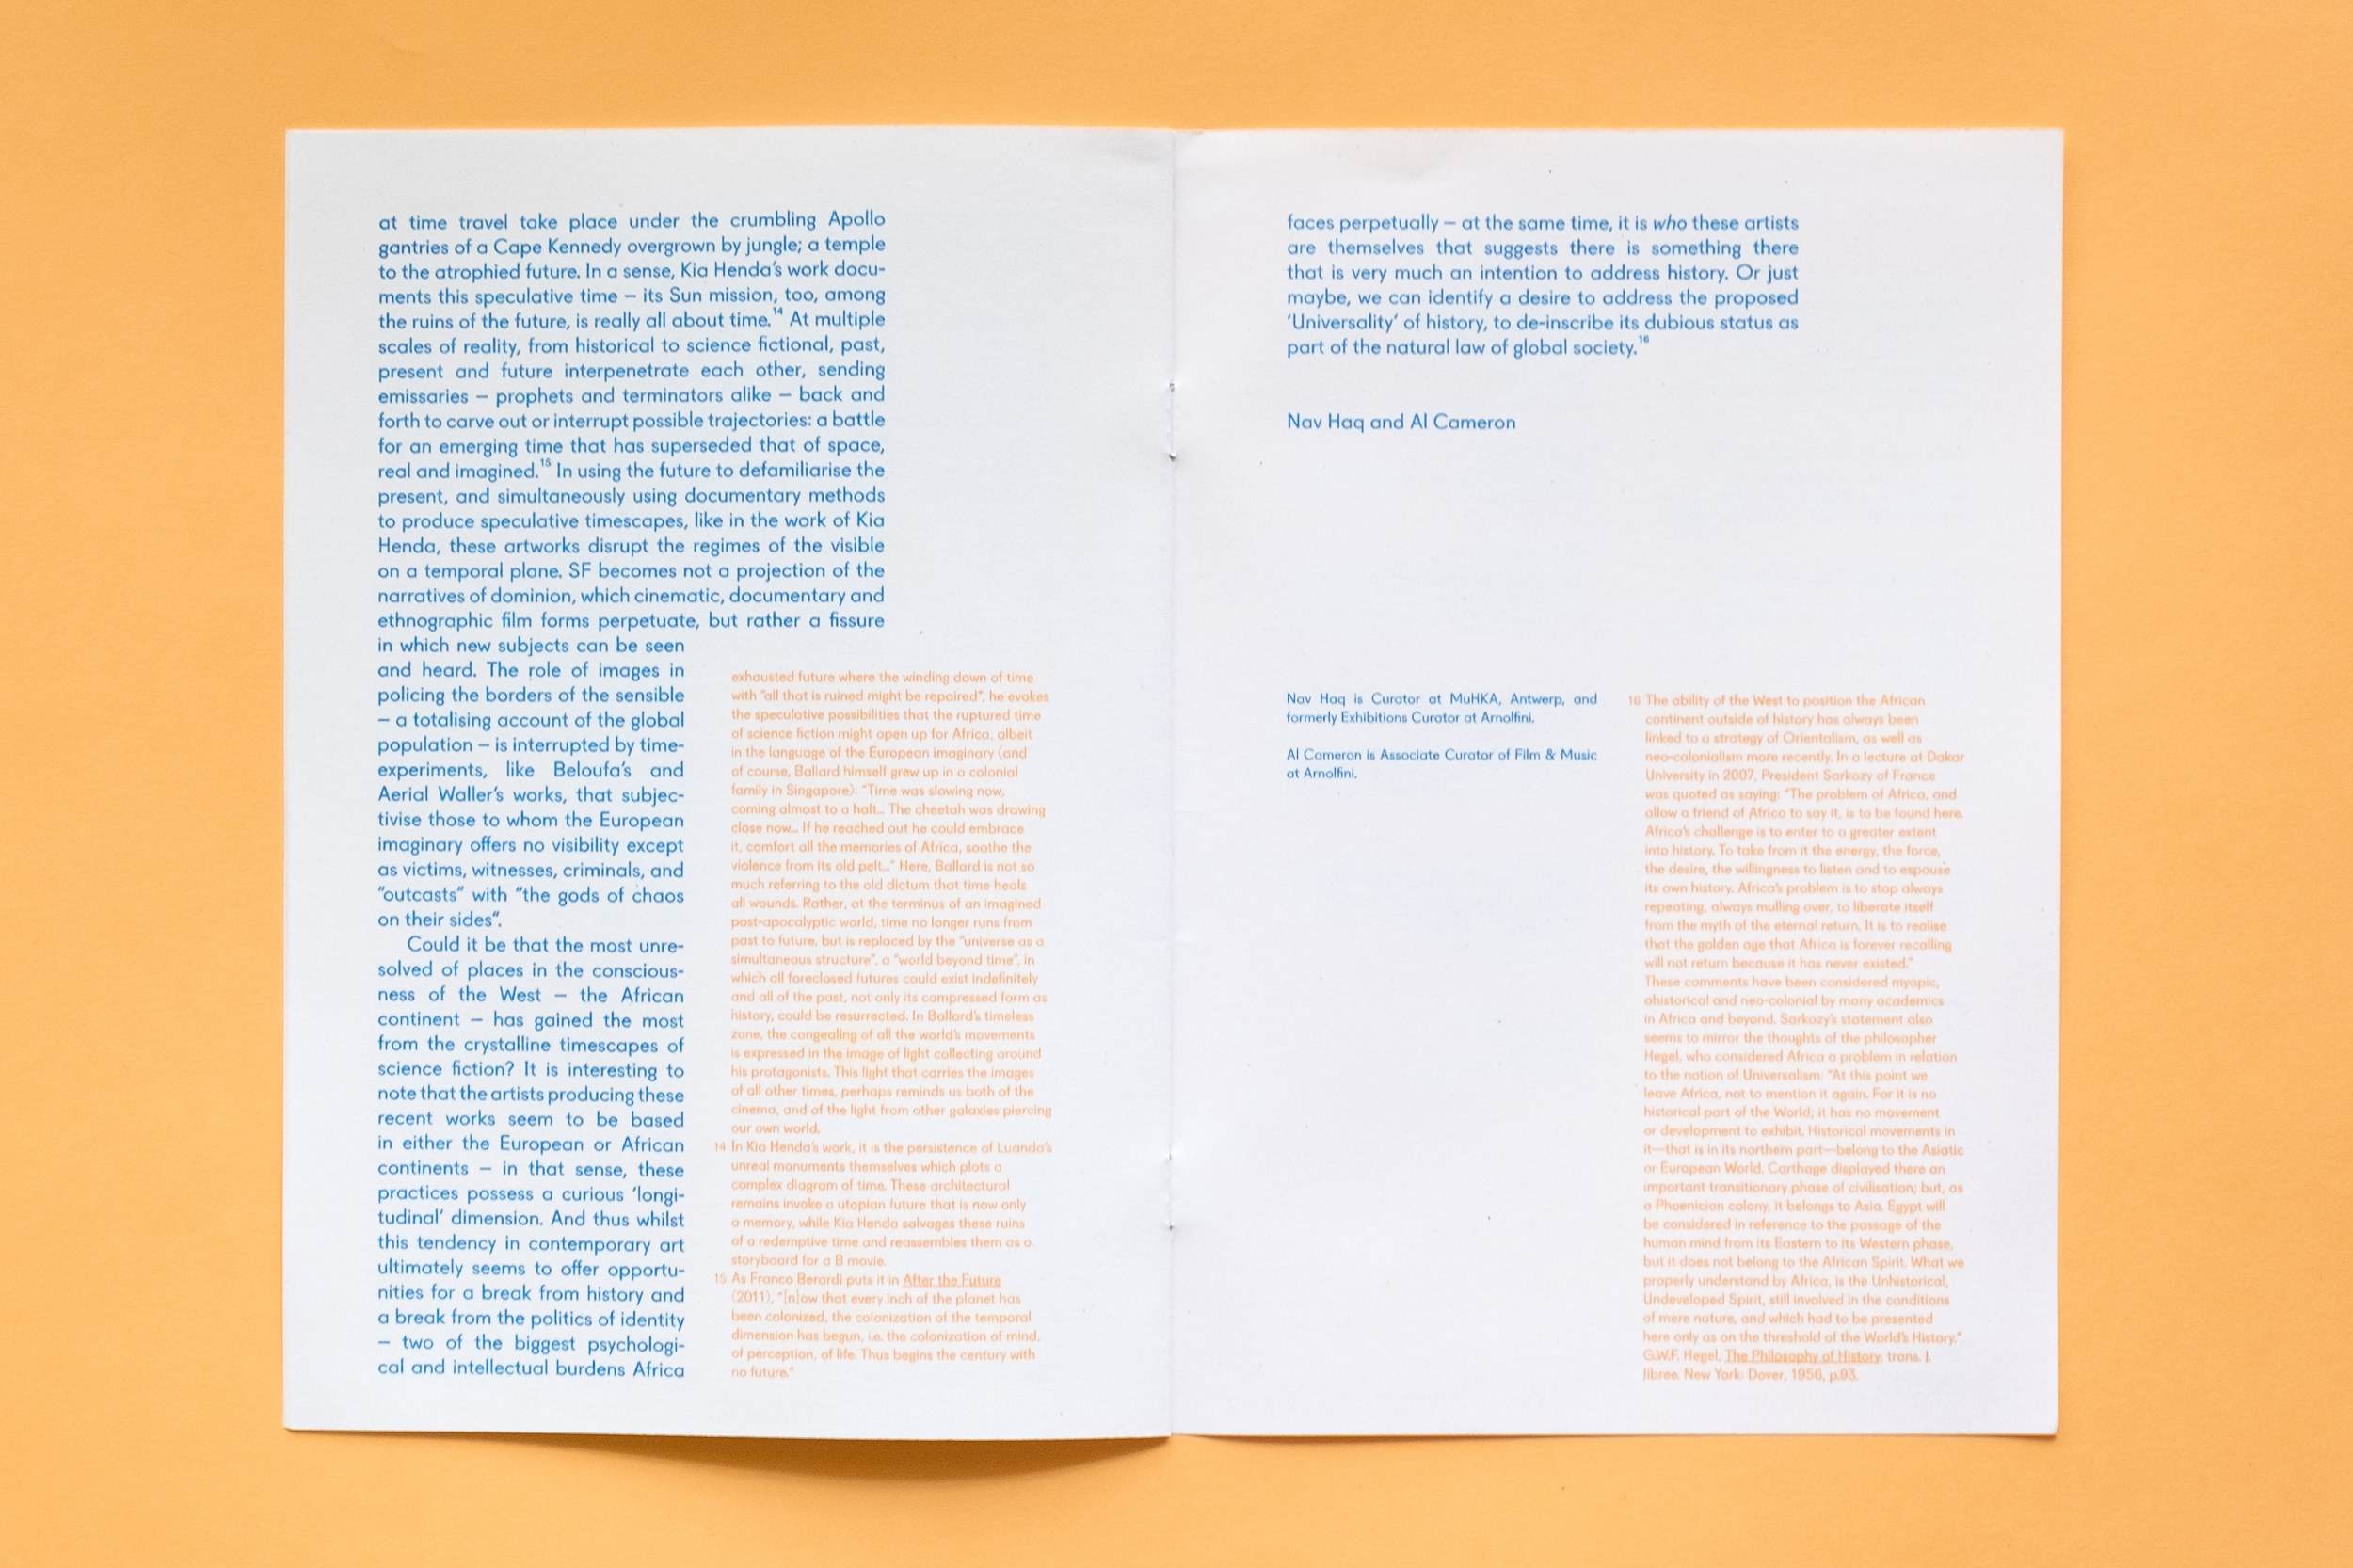 at time travel take place under the crumbling Apollo
gantries of a Cape Kennedy overgrown by jungle; a temple
to the atrophied future. In a sense, Kia Henda's work docu-
ments this speculative time – its Sun mission, too, among
the ruins of the future, is really all about time.14 At multiple
scales of reality, from historical to science fictional, past,
present and future interpenetrate each other, sending
emissaries – prophets and terminators alike – back and
forth to carve out or interrupt possible trajectories: a battle
for an emerging time that has superseded that of space,
real and imagined.15 In using the future to defamiliarise the
present, and simultaneously using documentary methods
to produce speculative timescapes, like in the work of Kia
Henda, these artworks disrupt the regimes of the visible
on a temporal plane. SF becomes not a projection of the
narratives of dominion, which cinematic, documentary and
ethnographic film forms perpetuate, but rather a fissure
in which new subjects can be seen
and heard. The role of images in
policing the borders of the sensible
– a totalising account of the global
population – is interrupted by time-
experiments, like Beloufa's and
Aerial Waller's works, that subjec-
tivise those to whom the European
imaginary offers no visibility except
as victims, witnesses, criminals, and
"outcasts" with "the gods of chaos
on their sides".
Could it be that the most unre-
solved of places in the conscious-
ness of the West – the African
continent – has gained the most
from the crystalline timescapes of
science fiction? It is interesting to
note that the artists producing these
recent works seem to be based
in either the European or African
continents – in that sense, these
practices possess a curious 'longi-
tudinal' dimension. And thus whilst
this tendency in contemporary art
ultimately seems to offer opportu-
nities for a break from history and
a break from the politics of identity
– two of the biggest psychologi-
cal and intellectual burdens Africa
exhausted future where the winding down of time
with "all that is ruined might be repaired", he evokes
the speculative possibilities that the ruptured time
of science fiction might open up for Africa, albeit
in the language of the European imaginary (and
of course, Ballard himself grew up in a colonial
family in Singapore): "Time was slowing now,
coming almost to a halt... The cheetah was drawing
close now... If he reached out he could embrace
it, comfort all the memories of Africa, soothe the
violence from its old pelt..." Here, Ballard is not so
much referring to the old dictum that time heals
all wounds. Rather, at the terminus of an imagined
post-apocalyptic world, time no longer runs from
past to future, but is replaced by the "universe as a
simultaneous structure", a "world beyond time", in
which all foreclosed futures could exist indefinitely
and all of the past, not only its compressed form as
history, could be resurrected. In Ballard's timeless
zone, the congealing of all the world's movements
is expressed in the image of light collecting around
his protagonists. This light that carries the images
of all other times, perhaps reminds us both of the
cinema, and of the light from other galaxies piercing
our own world.
14 In Kia Henda's work, it is the persistence of Luanda's
unreal monuments themselves which plots a
complex diagram of time. These architectural
remains invoke a utopian future that is now only
a memory, while Kia Henda salvages these ruins
of a redemptive time and reassembles them as a
storyboard for a B movie.
15 As Franco Berardi puts it in After the Future
(2011), "[n]ow that every inch of the planet has
been colonized, the colonization of the temporal
dimension has begun, i.e. the colonization of mind,
of perception, of life. Thus begins the century with
no future."
faces perpetually – at the same time, it is who these artists
are themselves that suggests there is something there
that is very much an intention to address history. Or just
maybe, we can identify a desire to address the proposed
'Universality' of history, to de-inscribe its dubious status as
part of the natural law of global society.16
Nav Haq and Al Cameron
Nav Haq is Curator at MuHKA, Antwerp, and
formerly Exhibitions Curator at Arnolfini.
Al Cameron is Associate Curator of Film & Music
at Arnolfini.
16 The ability of the West to position the African
continent outside of history has always been
linked to a strategy of Orientalism, as well as
neo-colonialism more recently. In a lecture at Dakar
University in 2007, President Sarkozy of France
was quoted as saying: "The problem of Africa, and
allow a friend of Africa to say it, is to be found here.
Africa's challenge is to enter to a greater extent
into history. To take from it the energy, the force,
the desire, the willingness to listen and to espouse
its own history. Africa's problem is to stop always
repeating, always mulling over, to liberate itself
from the myth of the eternal return. It is to realise
that the golden age that Africa is forever recalling
will not return because it has never existed."
These comments have been considered myopic,
ahistorical and neo-colonial by many academics
in Africa and beyond. Sarkozy's statement also
seems to mirror the thoughts of the philosopher
Hegel, who considered Africa a problem in relation
to the notion of Universalism: "At this point we
leave Africa, not to mention it again. For it is no
historical part of the World; it has no movement
or development to exhibit. Historical movements in
it—that is in its northern part—belong to the Asiatic
or European World. Carthage displayed there an
important transitionary phase of civilisation; but, as
a Phoenician colony, it belongs to Asia. Egypt will
be considered in reference to the passage of the
human mind from its Eastern to its Western phase,
but it does not belong to the African Spirit. What we
properly understand by Africa, is the Unhistorical,
Undeveloped Spirit, still involved in the conditions
of mere nature, and which had to be presented
here only as on the threshold of the World's History."
G.W.F. Hegel, The Philosophy of History, trans. J.
Jibree. New York: Dover, 1956, p.93.